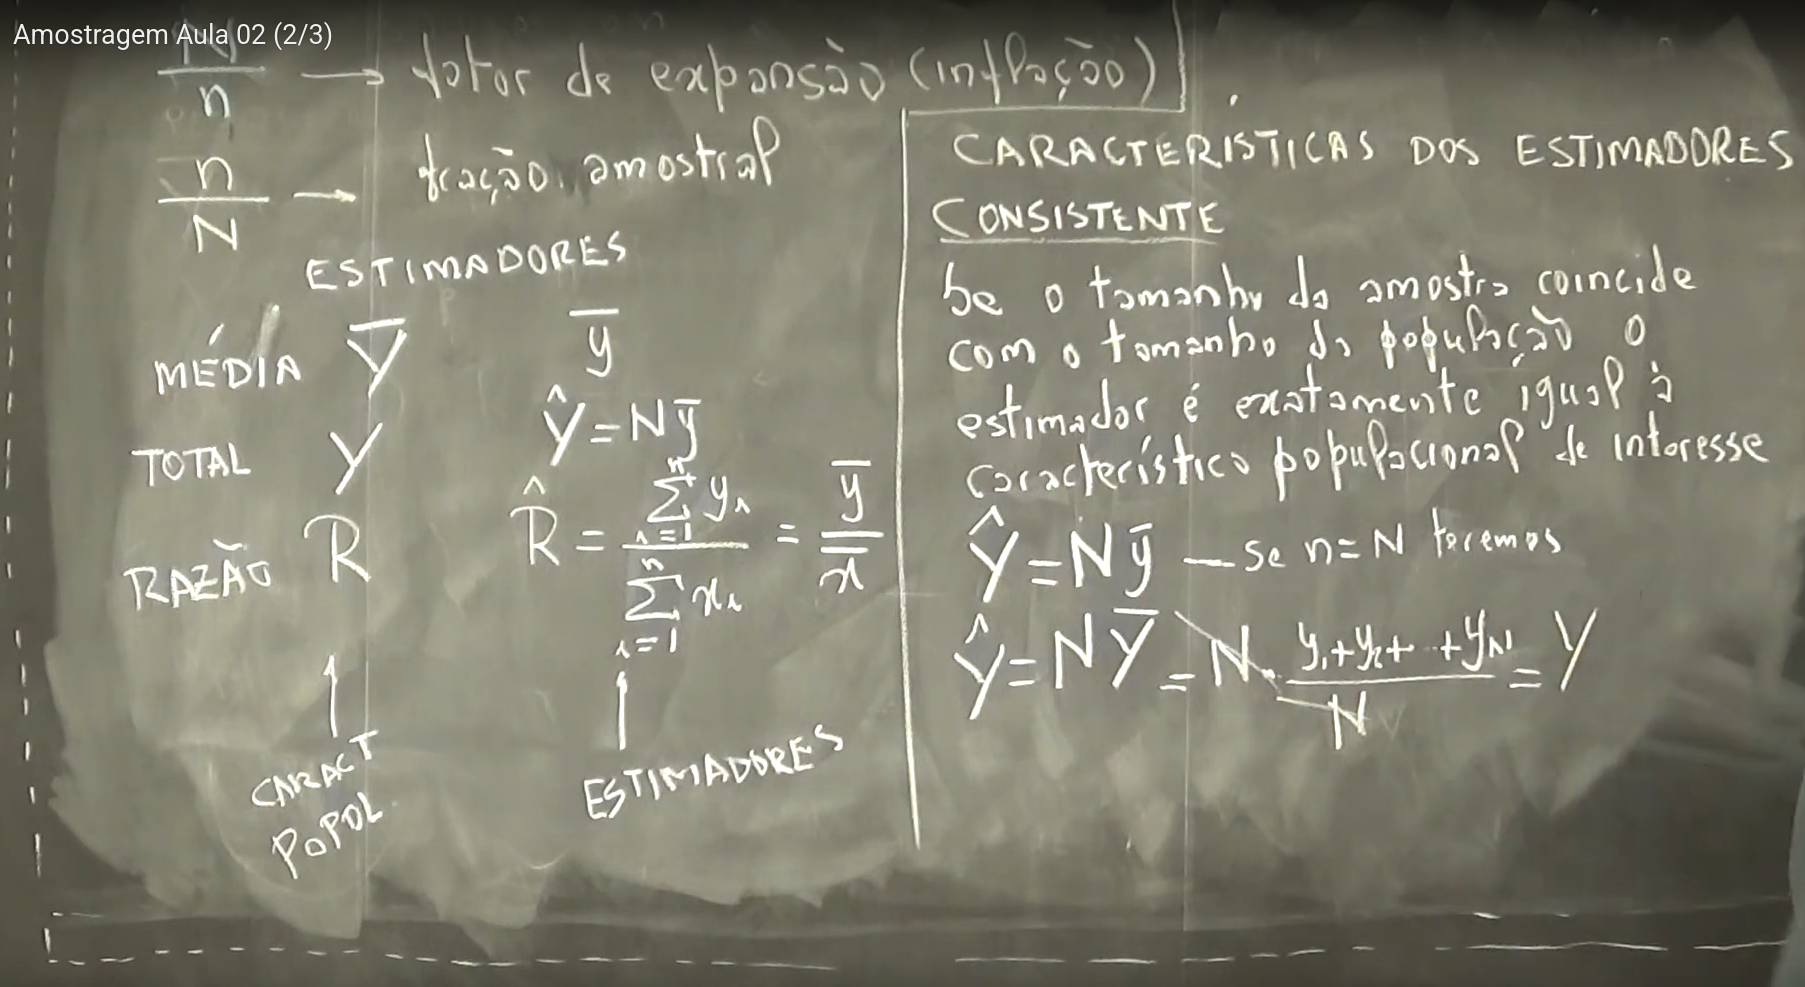 Amostragem Aula 02 (2/3)
N/n → fator de expansão (inflação)
n/N → fração amostral
ESTIMADORES
MÉDIA Y̅ y̅
TOTAL Y Ŷ = Ny̅
RAZÃO R R̂ = ∑ⁿᵢ₌₁ yᵢ / ∑ⁿᵢ₌₁ xᵢ = y̅ / x̅
↑ ↑
CARACT
POPUL
ESTIMADORES
CARACTERISTICAS DOS ESTIMADORES
CONSISTENTE
Se o tamanho da amostra coincide
com o tamanho da população o
estimador é exatamente igual à
característica populacional de interesse
Ŷ = Ny̅ — se n = N teremos
Ŷ = NY̅ = N · (y₁ + y₂ + ... + y_N) / N = Y